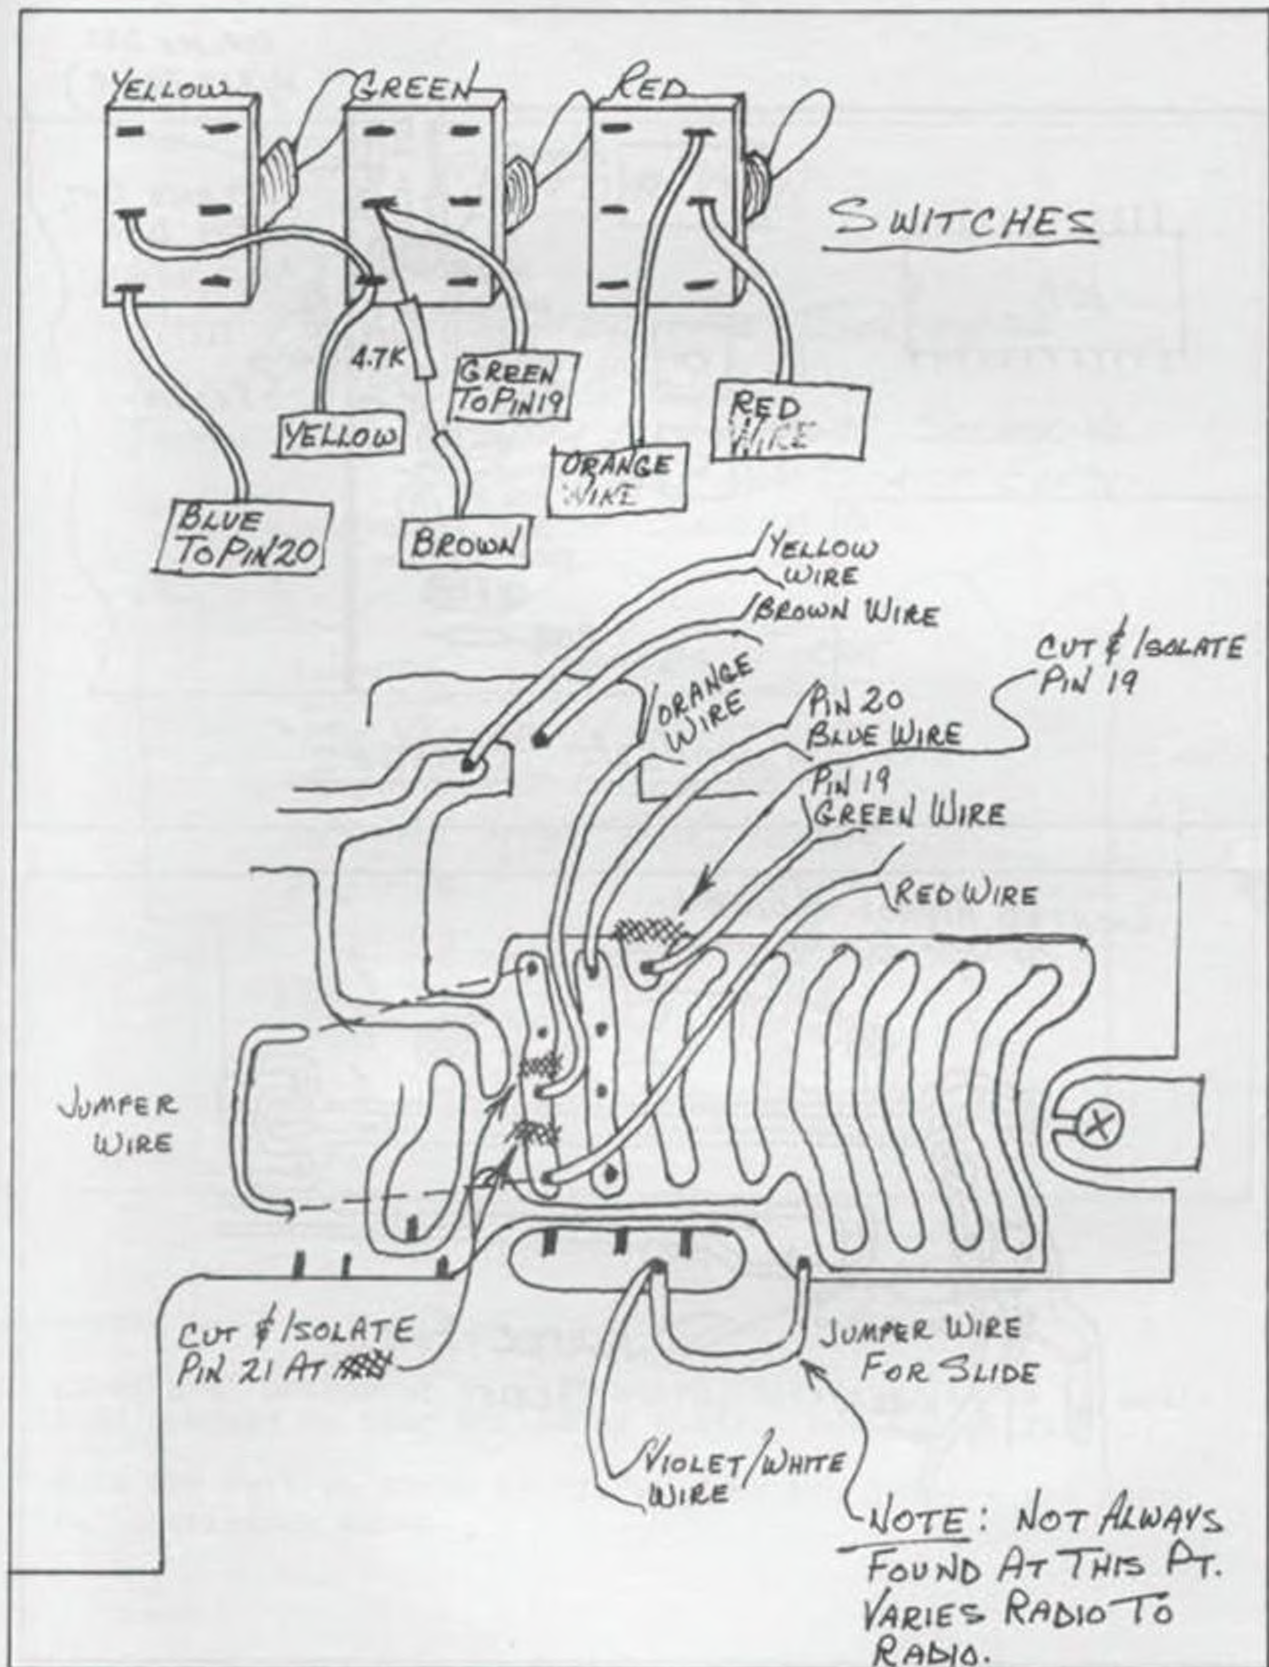 YELLOW
GREEN
RED
SWITCHES
4.7K
GREEN
TO PIN 19
RED
WIRE
YELLOW
ORANGE
WIRE
BLUE
TO PIN 20
BROWN
YELLOW
WIRE
BROWN WIRE
ORANGE
WIRE
CUT & ISOLATE
PIN 19
PIN 20
BLUE WIRE
PIN 19
GREEN WIRE
RED WIRE
JUMPER
WIRE
CUT & ISOLATE
PIN 21 AT
JUMPER WIRE
FOR SLIDE
VIOLET/WHITE
WIRE
NOTE: NOT ALWAYS
FOUND AT THIS PT.
VARIES RADIO TO
RADIO.